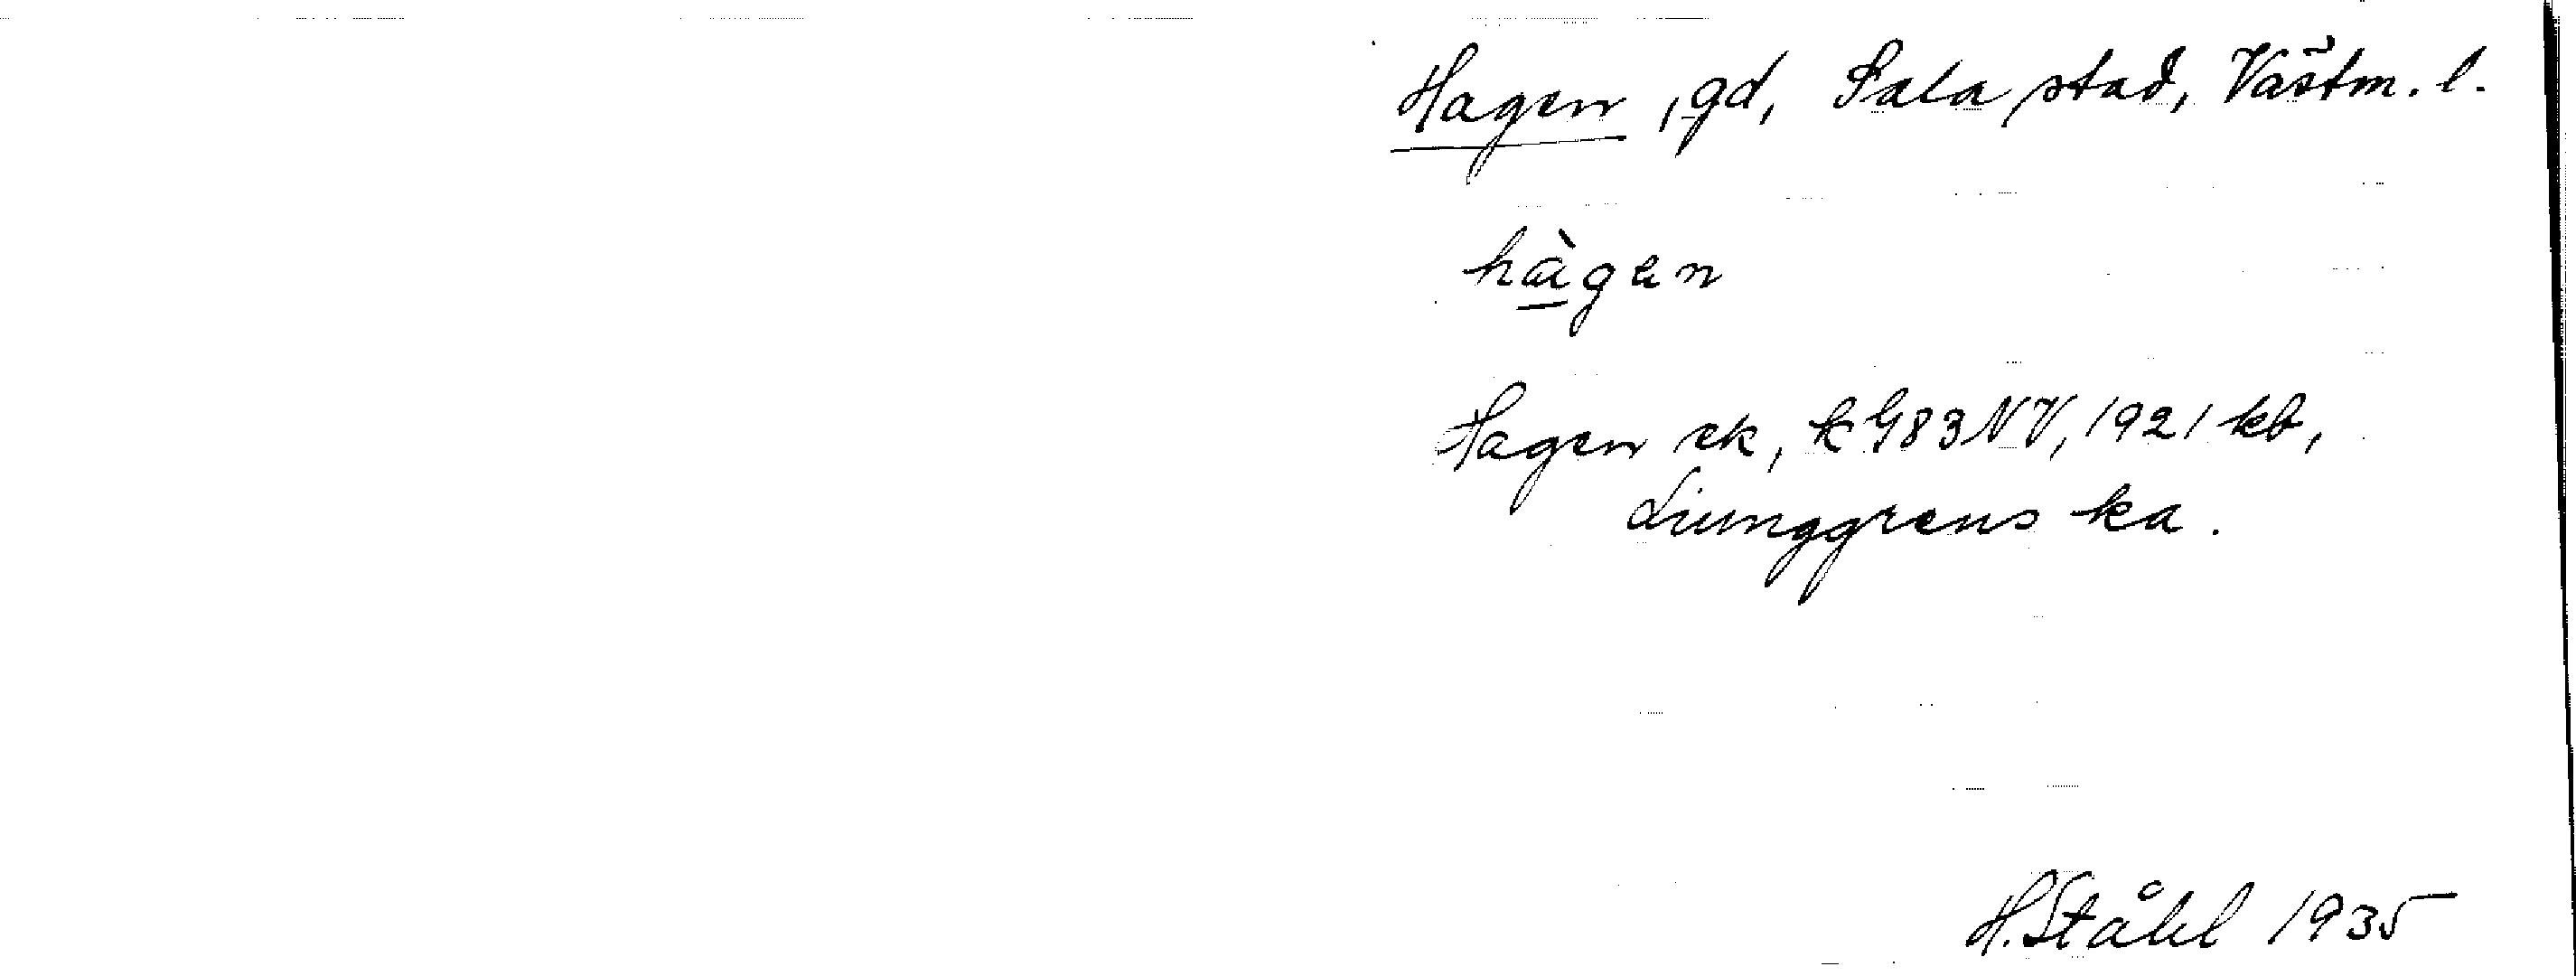 Hagen, gd, Sala stad, Västm. l.
hàgen
Hagen ek, k G83NV, 1921 kb,
Ljunggrens ka.
H. Ståhl 1935